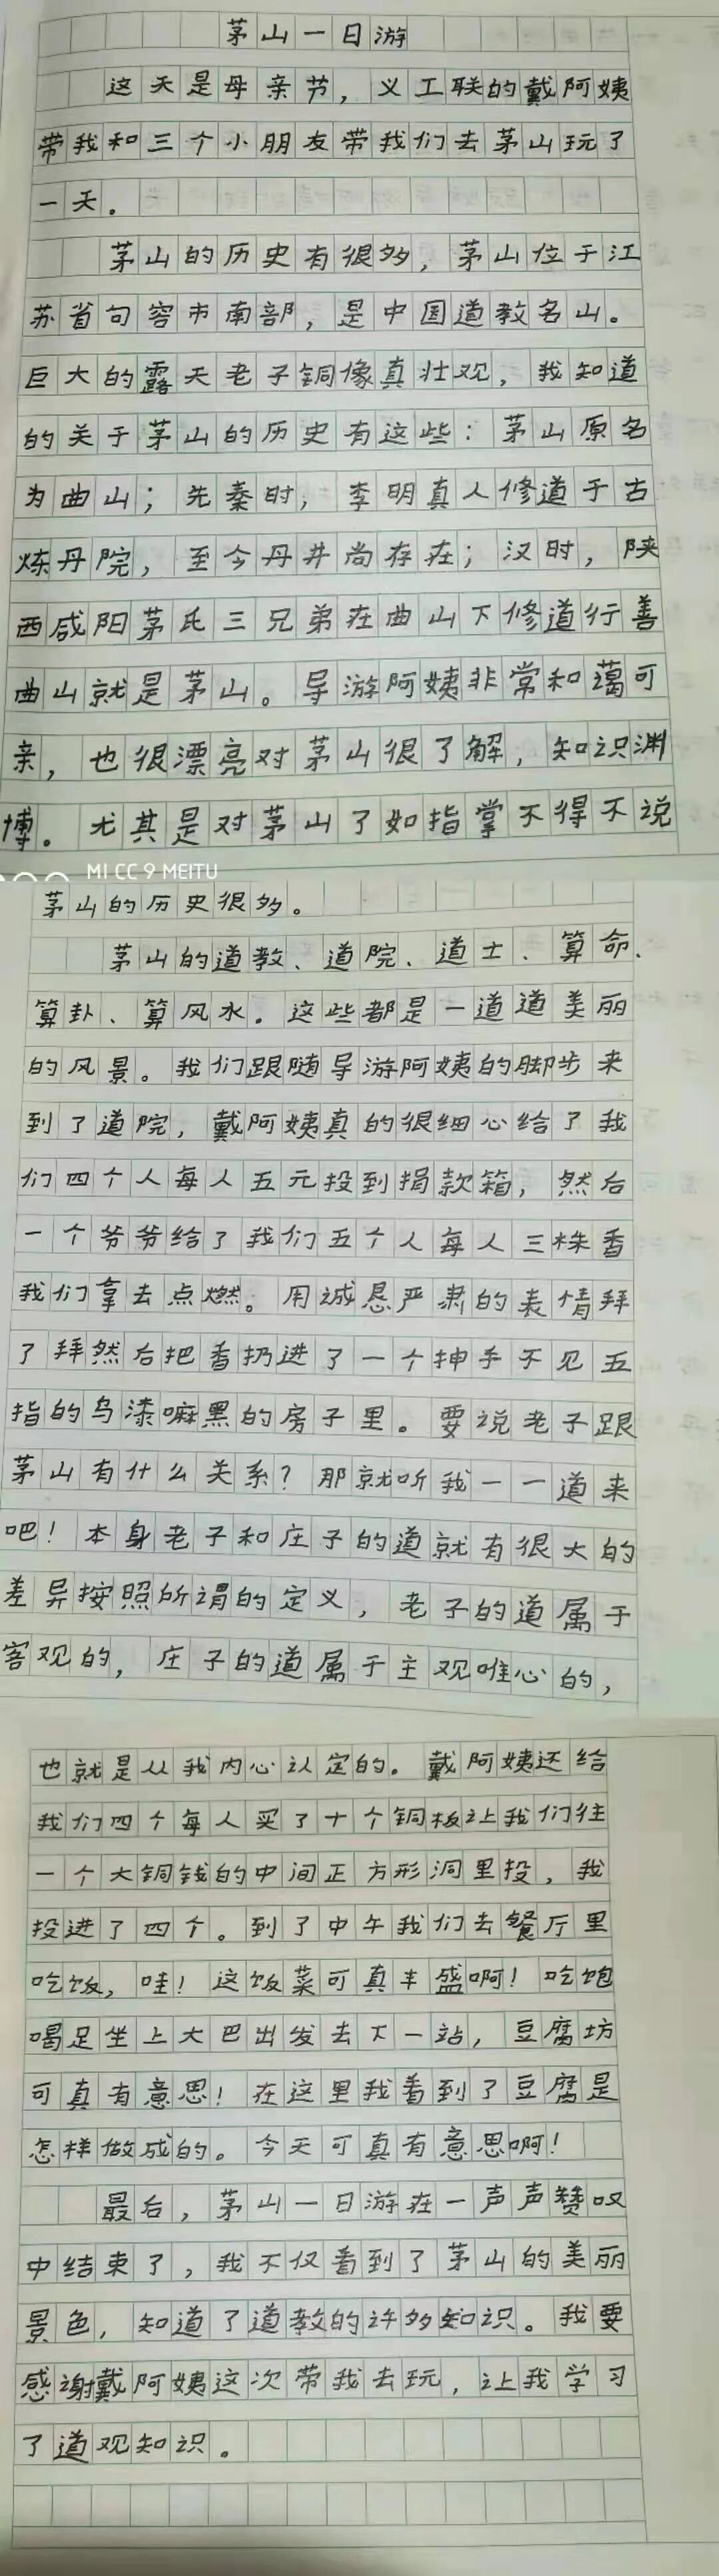 茅山一日游
这天是母亲节，义工联的戴阿姨
带我和三个小朋友带我们去茅山玩了
一天。
茅山的历史有很多，茅山位于江
苏省句容市南部，是中国道教名山。
巨大的露天老子铜像真壮观，我知道
的关于茅山的历史有这些：茅山原名
为曲山；先秦时，李明真人修道于古
炼丹院，至今丹井尚存在；汉时，陕
西咸阳茅氏三兄弟在曲山下修道行善
曲山就是茅山。导游阿姨非常和蔼可
亲，也很漂亮对茅山很了解，知识渊
博。尤其是对茅山了如指掌不得不说
MI CC 9 MEITU
茅山的历史很多。
茅山的道教、道院、道士、算命、
算卦、算风水。这些都是一道道美丽
的风景。我们跟随导游阿姨的脚步来
到了道院，戴阿姨真的很细心给了我
们四个人每人五元投到捐款箱，然后
一个爷爷给了我们五个人每人三株香
我们拿去点燃。用诚恳严肃的表情拜
了拜然后把香扔进了一个抻手不见五
指的乌漆嘛黑的房子里。要说老子跟
茅山有什么关系？那就听我一一道来
吧！本身老子和庄子的道就有很大的
差异按照所谓的定义，老子的道属于
客观的，庄子的道属于主观唯心的，
也就是从我内心认定的。戴阿姨还给
我们四个每人买了十个铜板让我们往
一个大铜钱的中间正方形洞里投，我
投进了四个。到了中午我们去餐厅里
吃饭，哇！这饭菜可真丰盛啊！吃饱
喝足坐上大巴出发去下一站，豆腐坊
可真有意思！在这里我看到了豆腐是
怎样做成的。今天可真有意思啊！
最后，茅山一日游在一声声赞叹
中结束了，我不仅看到了茅山的美丽
景色，知道了道教的许多知识。我要
感谢戴阿姨这次带我去玩，让我学习
了道观知识。